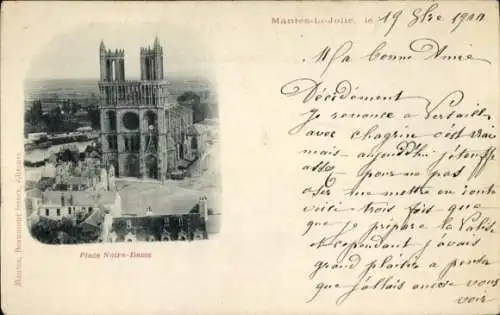 Mantes-la-Jolie, le 19 8bre 1900
Ma bonne Amie
Décidément
je renonce à Versailles
avec chagrin c'est vrai
mais aujourd'hui j'étouffe
assez pour ne pas
oser me mettre en route
voici trois fois que
que je prépare la valise
et cependant j'avais
grand plaisir à penser
que j'allais encore vous
voir
Place Notre-Dame
Mantes, Beaumont frères, éditeurs